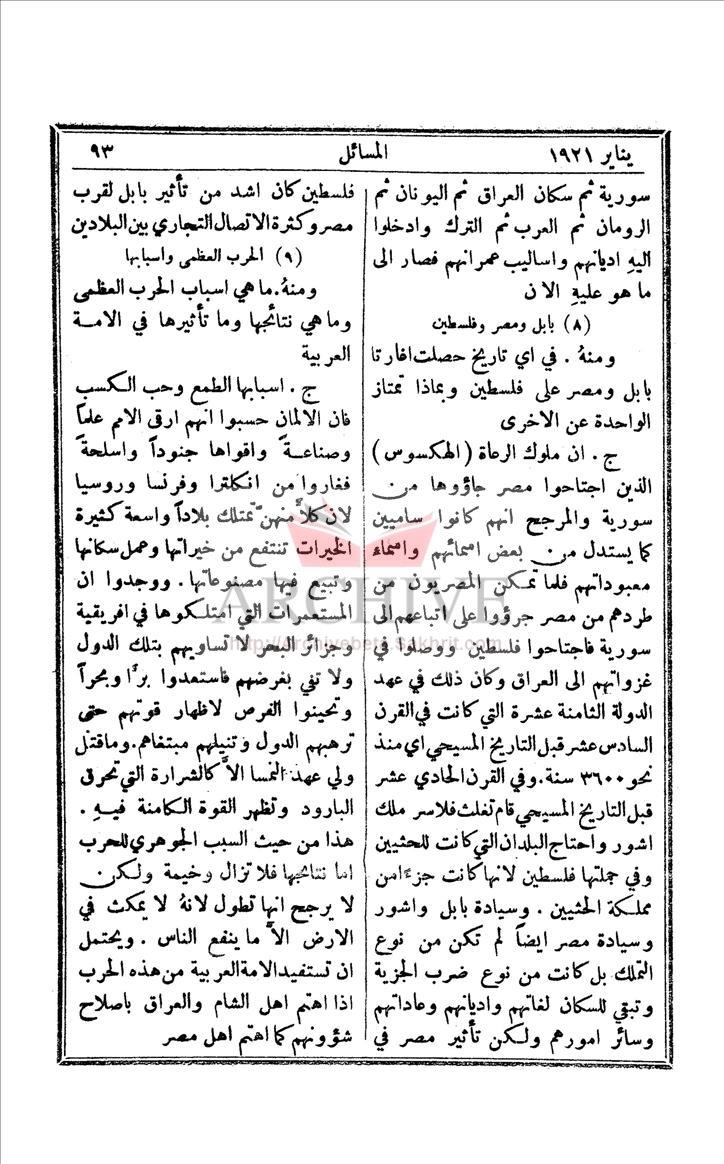 يناير ١٩٢١
المسائل
٩٣
سورية ثم سكان العراق ثم اليونان ثم
الرومان ثم العرب ثم الترك وادخلوا
اليهِ اديانهم واساليب عمرانهم فصار الى
ما هو عليهِ الان
(٨) بابل ومصر وفلسطين
ومنهُ . في اي تاريخ حصلت اغارتا
بابل ومصر على فلسطين وبماذا تمتاز
الواحدة عن الاخرى
ج . ان ملوك الرعاة (الهكسوس)
الذين اجتاحوا مصر جاؤوها من
سورية والمرجح انهم كانوا ساميين
كما يستدل من بعض اسمائهم واسماء
معبوداتهم فلما تمكن المصريون من
طردهم من مصر جرؤوا على اتباعهم الى
سورية فاجتاحوا فلسطين ووصلوا في
غزواتهم الى العراق وكان ذلك في عهد
الدولة الثامنة عشرة التي كانت في القرن
السادس عشر قبل التاريخ المسيحي اي منذ
نحو ٣٦٠٠ سنة . وفي القرن الحادي عشر
قبل التاريخ المسيحي قام تغلث فلاسر ملك
اشور واحتاج البلدان التي كانت للحثيين
وفي جملتها فلسطين لانها كانت جزءًا من
مملكة الحثيين . وسيادة بابل واشور
وسيادة مصر ايضاً لم تكن من نوع
التملك بل كانت من نوع ضرب الجزية
وتبقي للسكان لغاتهم واديانهم وعاداتهم
وسائر امورهم ولكن تأثير مصر في
فلسطين كان اشد من تأثير بابل لقرب
مصر وكثرة الاتصال التجاري بين البلادين
(٩) الحرب العظمى واسبابها
ومنهُ . ما هي اسباب الحرب العظمى
وما هي نتائجها وما تأثيرها في الامة
العربية
ج . اسبابها الطمع وحب الكسب
فان الالمان حسبوا انهم ارقى الامم علماً
وصناعةً واقواها جنوداً واسلحةً
فغاروا من انكلترا وفرنسا وروسيا
لان كلاًّ منهنَّ تمتلك بلاداً واسعة كثيرة
الخيرات تنتفع من خيراتها وعمل سكانها
وتبيع فيها مصنوعاتها . ووجدوا ان
المستعمرات التي امتلكوها في افريقية
وجزائر البحر لا تساويهم بتلك الدول
ولا تفي بغرضهم فاستعدوا برًّا وبحراً
وتحينوا الفرص لاظهار قوتهم حتى
ترهبهم الدول وتنيلهم مبتغاهم . وما قتل
ولي عهد النمسا الاَّ كالشرارة التي تحرق
البارود وتظهر القوة الكامنة فيهِ .
هذا من حيث السبب الجوهري للحرب
اما نتائجها فلا تزال وخيمة ولكن
لا يرجح انها تطول لانهُ لا يمكث في
الارض الاَّ ما ينفع الناس . ويحتمل
ان تستفيد الامة العربية من هذه الحرب
اذا اهتم اهل الشام والعراق باصلاح
شؤونهم كما اهتم اهل مصر
ARCHIVE
http://Archivebeta.Sakhrit.com